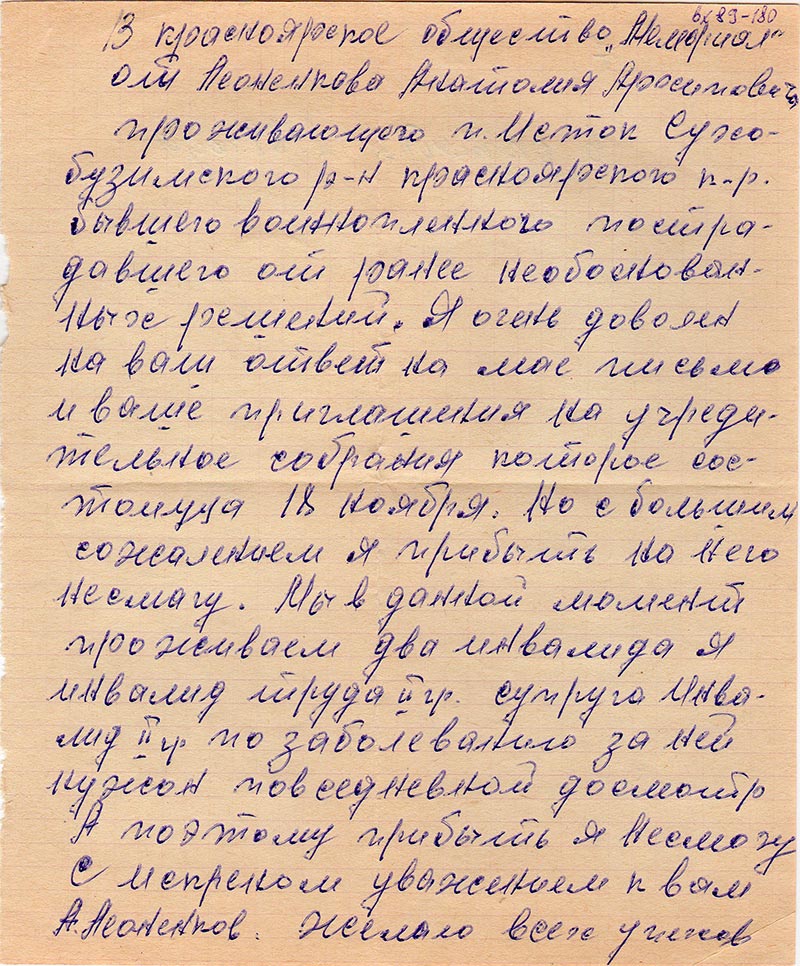 вх 89-180
В красноярское общество „Мемориал"
от Леоненкова Анатолия Архиповича
проживающего п. Исток Сухо-
бузимского р-н красноярского к-р.
бывшего воиннопленного постра-
давшего от ранее необоснован-
ных решений. Я очень доволен
на ваш ответ на мае письмо
и ваше приглашения на учреди-
тельное собрания которое сос-
тоицца 18 ноября. Но с большим
сожалением я прибыть на него
несмагу. Мы в данной момент
проживаем два инвалида я
инвалид труда II гр. супруга инва-
лид II гр по заболеванию за ней
нужон повседневной досмотр
А поэтому прибыть я несмогу
С искреном уважением к вам
А. Леоненков. Желаю всех успехов